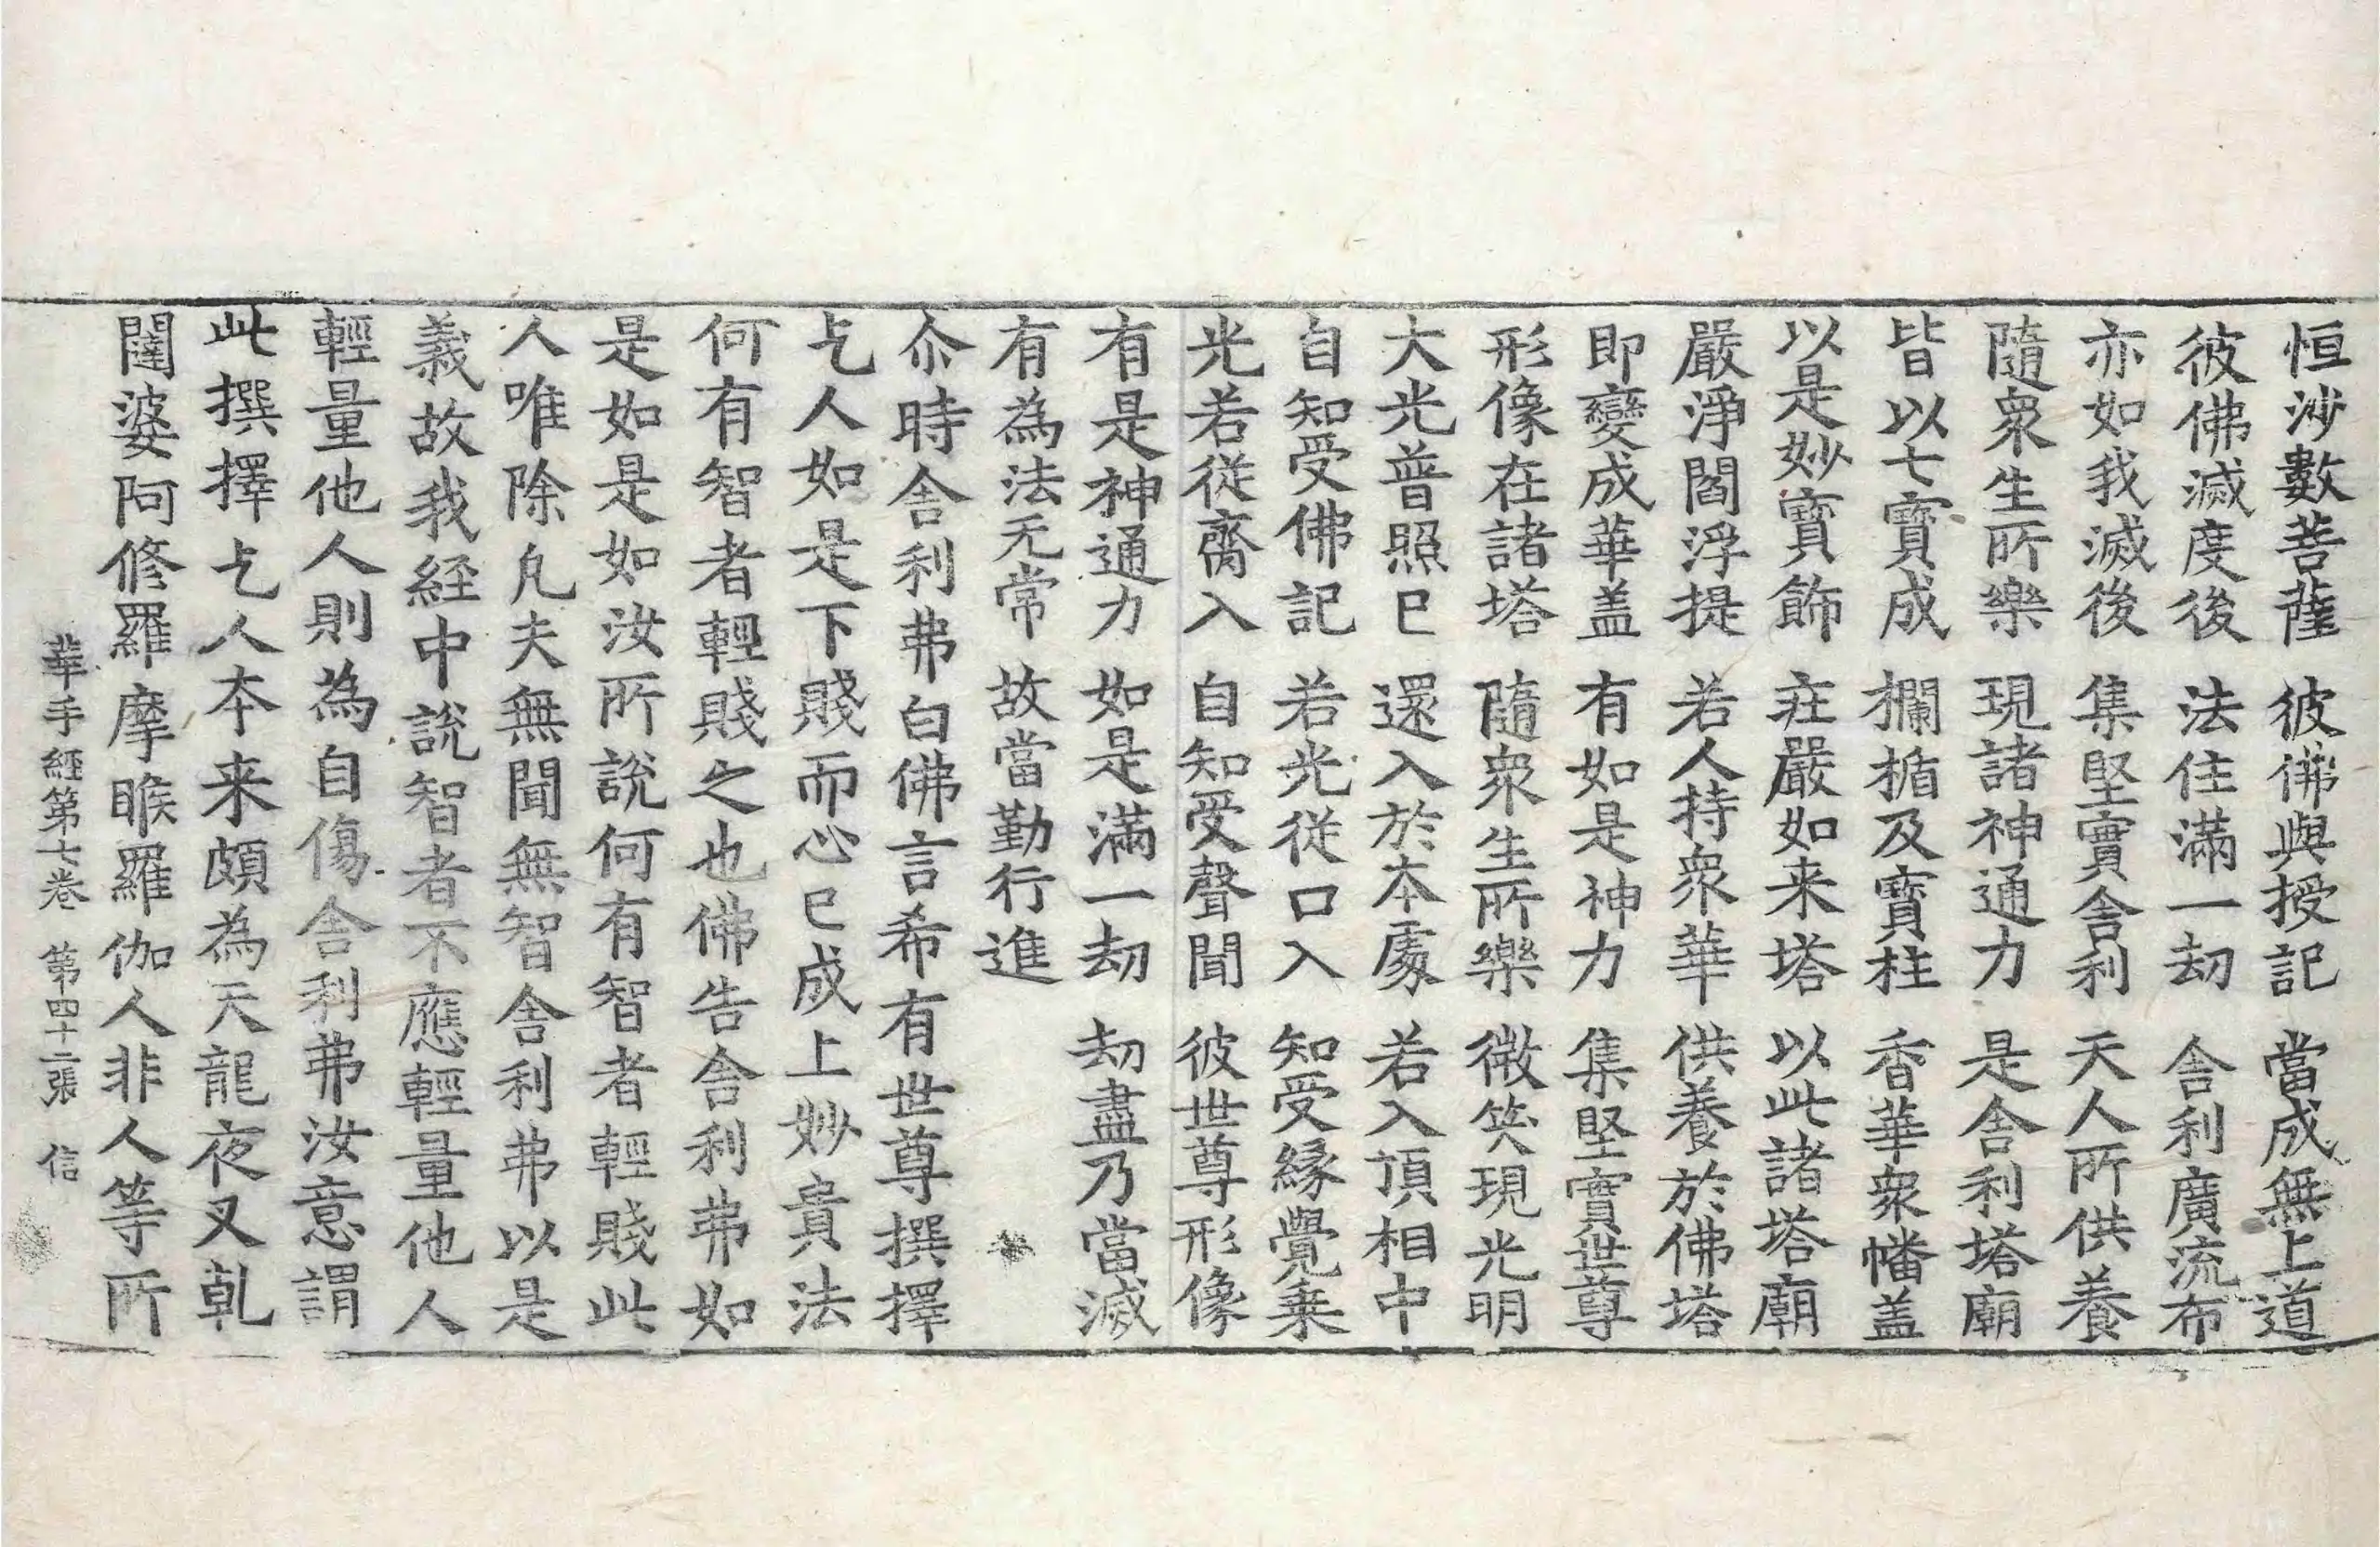 恒沙數菩薩　彼佛與授記　當成無上道
彼佛滅度後　法住滿一劫　舎利廣流布
亦如我滅後　集堅實舎利　天人所供養
隨衆生所樂　現諸神通力　是舎利塔廟
皆以七寶成　欄楯及寶柱　香華衆幡盖
以是妙寶飾　莊嚴如来塔　以此諸塔廟
嚴淨閻浮提　若人持衆華　供養於佛塔
即變成華盖　有如是神力　集堅實世尊
形像在諸塔　隨衆生所樂　微笑現光明
大光普照已　還入於本處　若入頂相中
自知受佛記　若光從口入　知受緣覺乗
光若從齎入　自知受聲聞　彼世尊形像
有是神通力　如是滿一劫　劫盡乃當滅
有為法无常　故當勤行進
尒時舎利弗白佛言希有世尊撰擇
乞人如是下賤而心已成上妙貴法
何有智者輕賤之也佛告舎利弗如
是如是如汝所說何有智者輕賤此
人唯除凡夫無聞無智舎利弗以是
義故我経中說智者不應輕量他人
輕量他人則為自傷舎利弗汝意謂
此撰擇乞人本来頗為天龍夜叉乹
闥婆阿修羅摩睺羅伽人非人等所
華手経第七卷　第四十二張　信